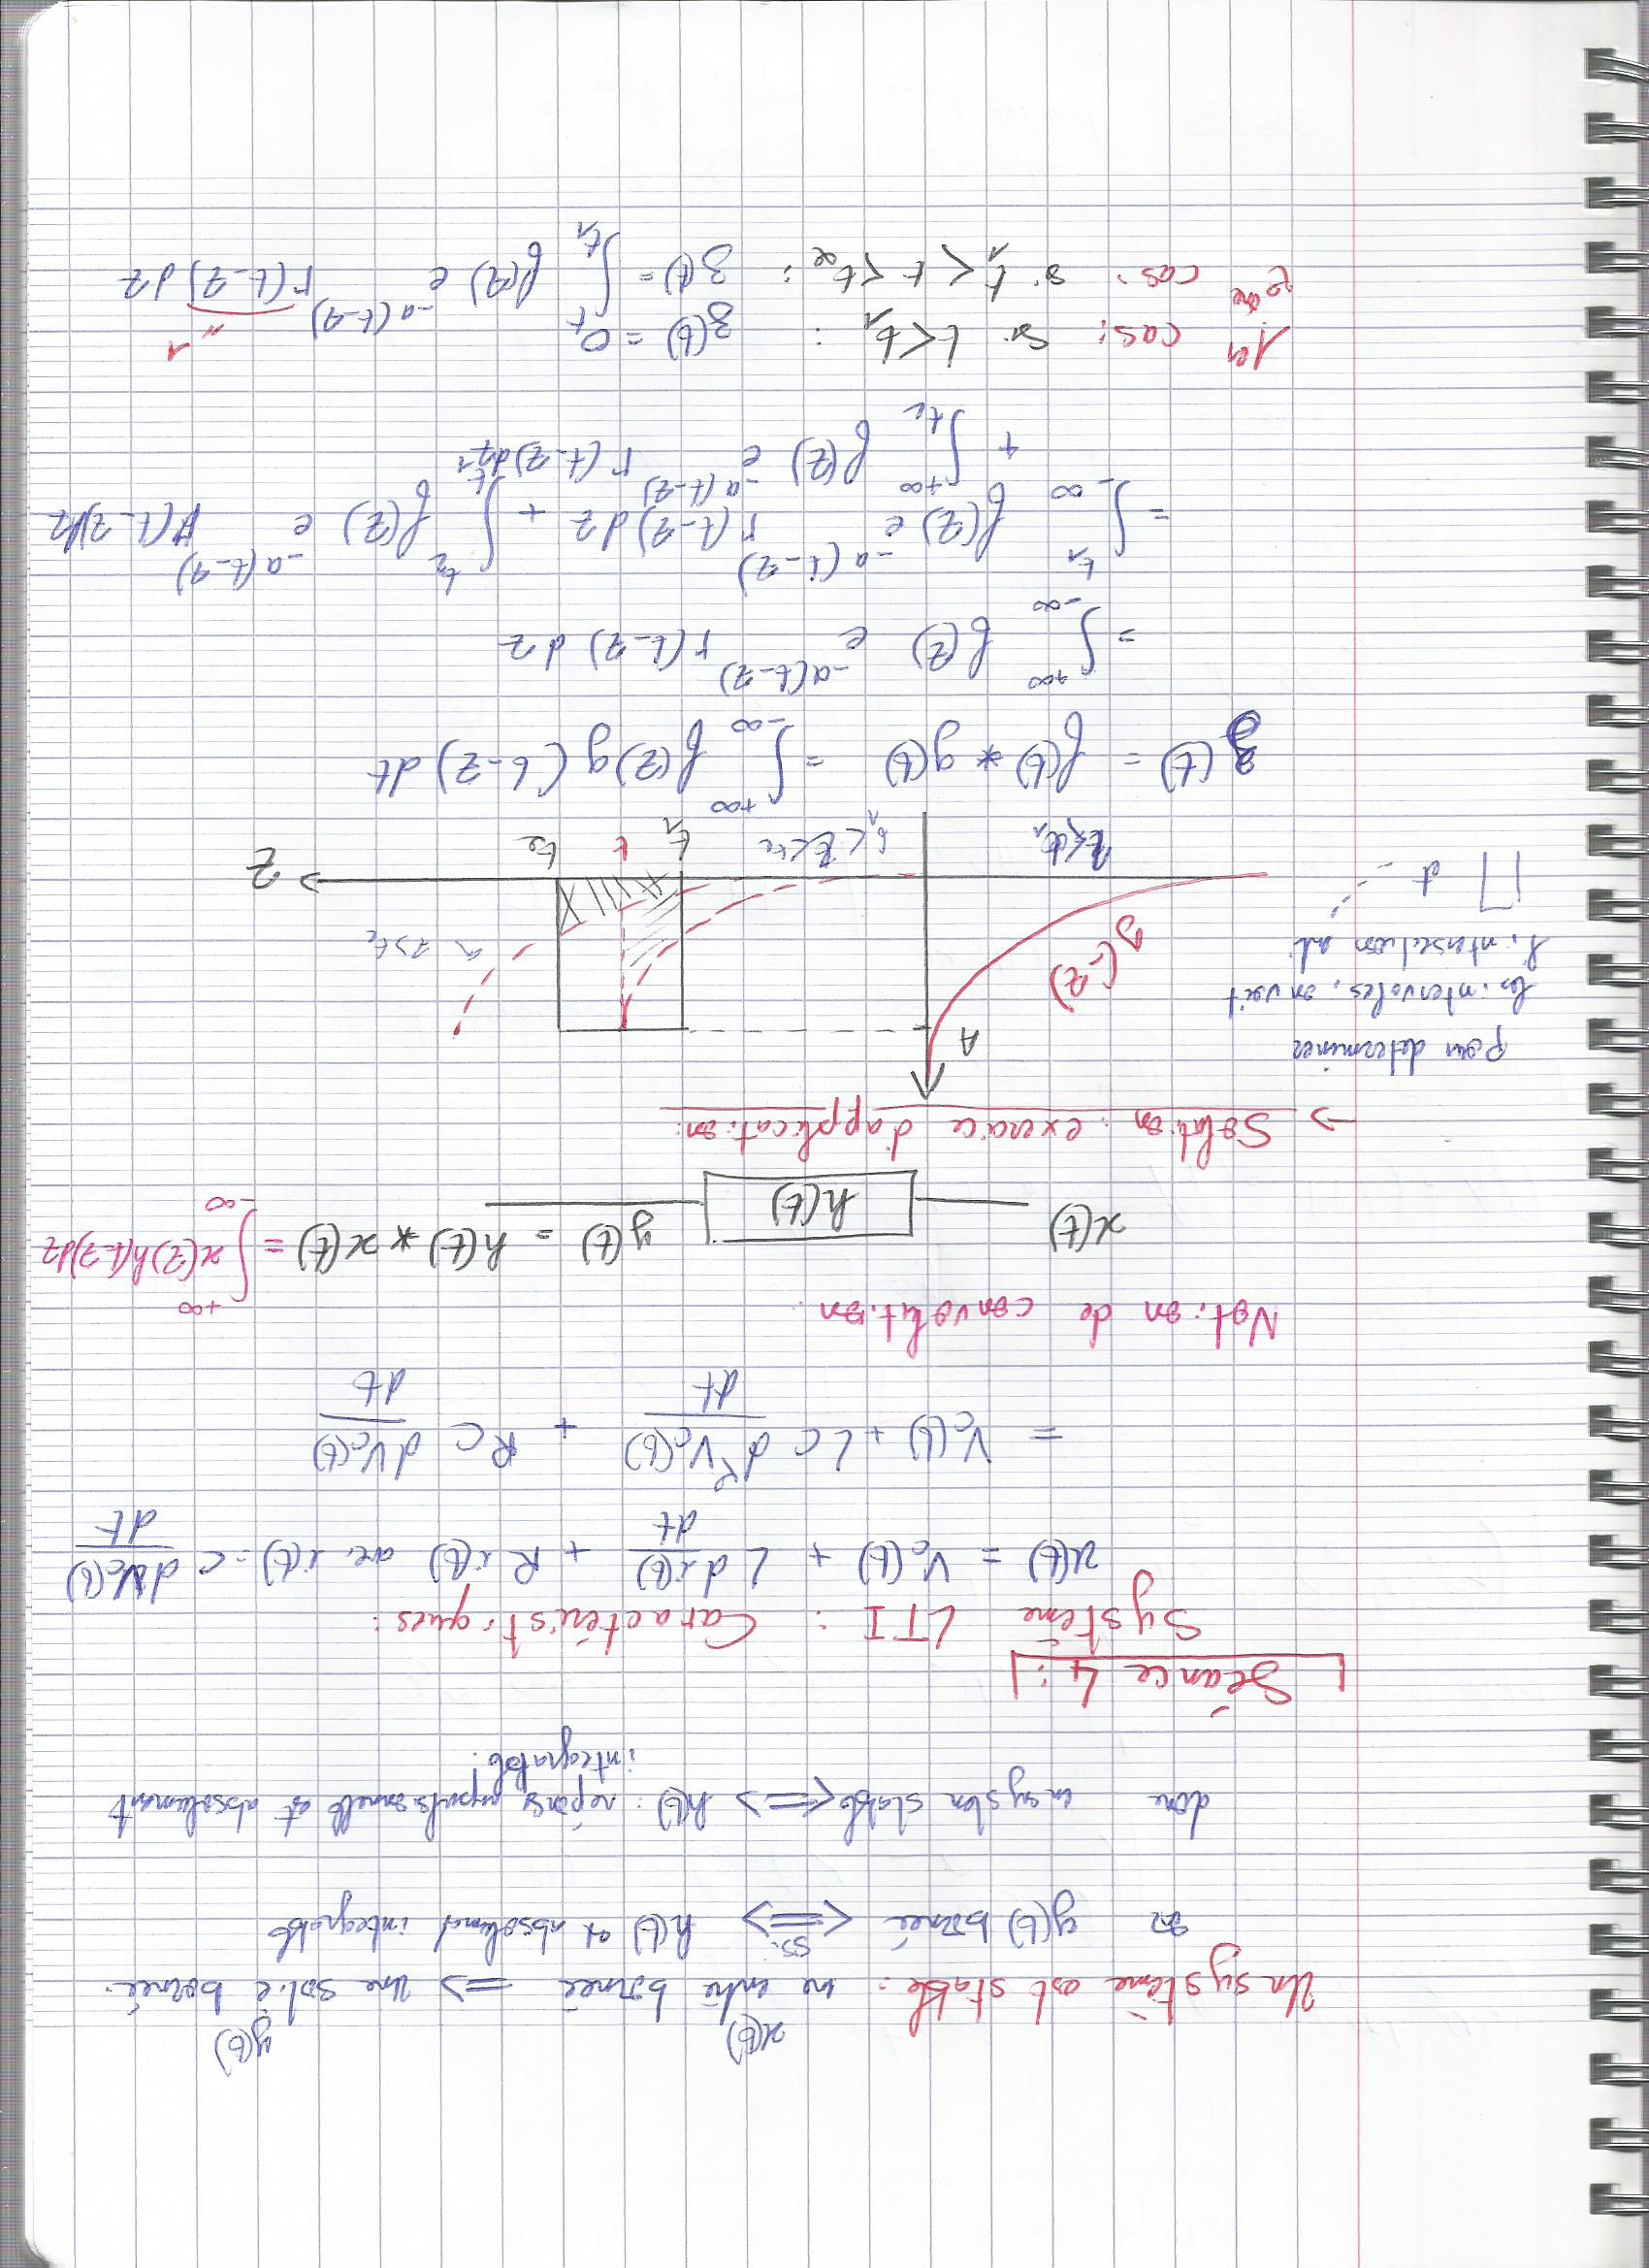 x(t) y(t)
Un système est stable : une entrée bornée => une sortie bornée.
y(t) bornée <=> h(t) est absolument integrable
ssi
donc un système stable <=> h(t) : repons impulsionnelle est absolument
integrable.
Séance 4 :
Système LTI : Caractéristiques :
x(t) = Vc(t) + L di(t)/dt + R i(t) avec i(t) = C dVc(t)/dt
= Vc(t) + LC d²Vc(t)/dt + RC dVc(t)/dt
Notion de convolution.
x(t) h(t) y(t) = h(t) * x(t) = ∫_{-∞}^{+∞} x(τ) h(t-τ) dτ
-> Solution : exercice d'application :
pour determiner
les intervalles, on voit
l'intersection
A
g(-τ)
t<t₁ t₁<t<t₂ t₁ t t₂ τ
g(t) = f(t) * g(t) = ∫_{-∞}^{+∞} f(τ) g(t-τ) dt
= ∫_{-∞}^{+∞} f(τ) e^{-a(t-τ)} Γ(t-τ) dτ
= ∫_{-∞}^{t₁} f(τ) e^{-a(t-τ)} Γ(t-τ) dτ + ∫_{t₁}^{t₂} f(τ) e^{-a(t-τ)} Γ(t-τ) dτ
+ ∫_{t₂}^{+∞} f(τ) e^{-a(t-τ)} Γ(t-τ) dτ
1er cas : si t < t₁ : z(t) = 0
2eme cas : si t₁ < t < t₂ : z(t) = ∫_{t₁}^{t} f(τ) e^{-a(t-τ)} Γ(t-τ) dτ
" 1